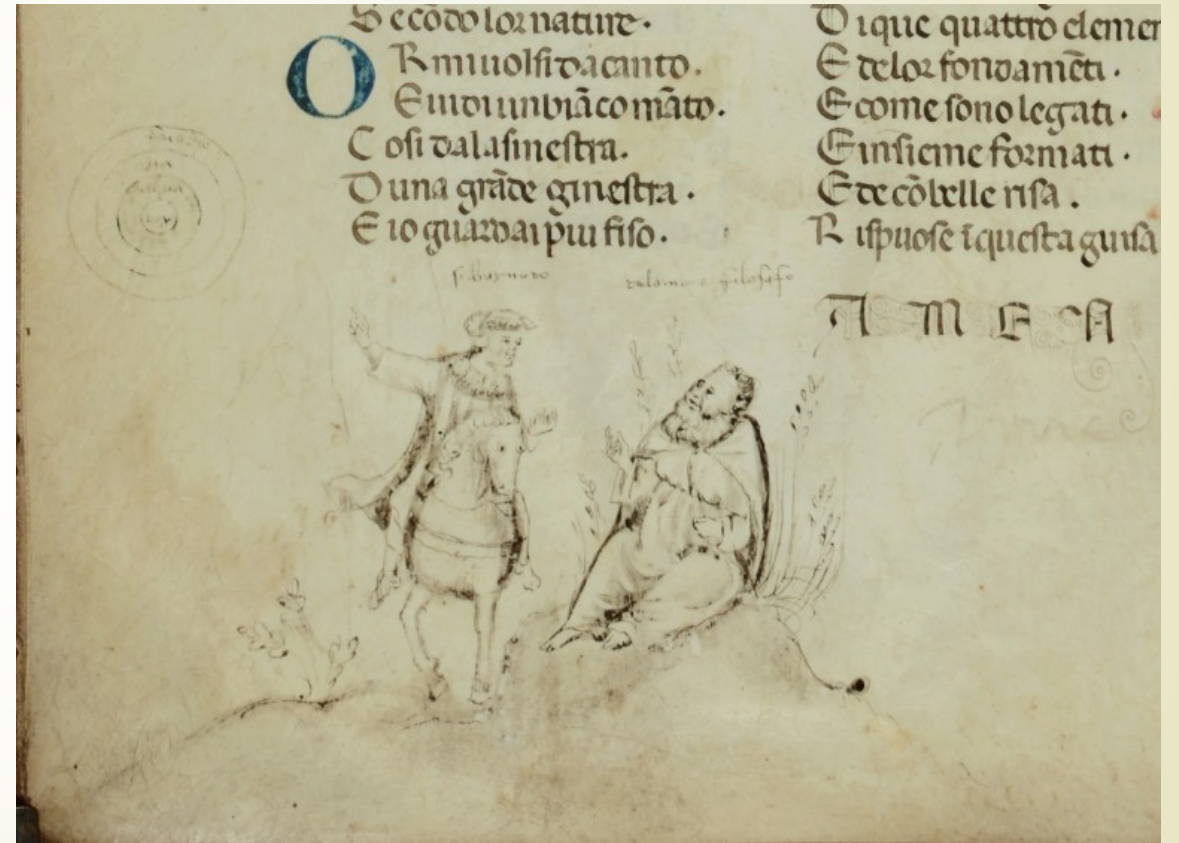 Secōdo lor nature.
ORmi uolsi da canto.
E uidi un biāco māto.
Cosi dala sinestra.
Duna grāde ginestra.
E io guardai p̄iu fiso.
Di que quattro elemen
E de lor fondamēti.
E come sono legati.
E insieme formati.
E de cō belle risa.
Rispuose ī questa guisa
tolomeo filosafo
A M E A